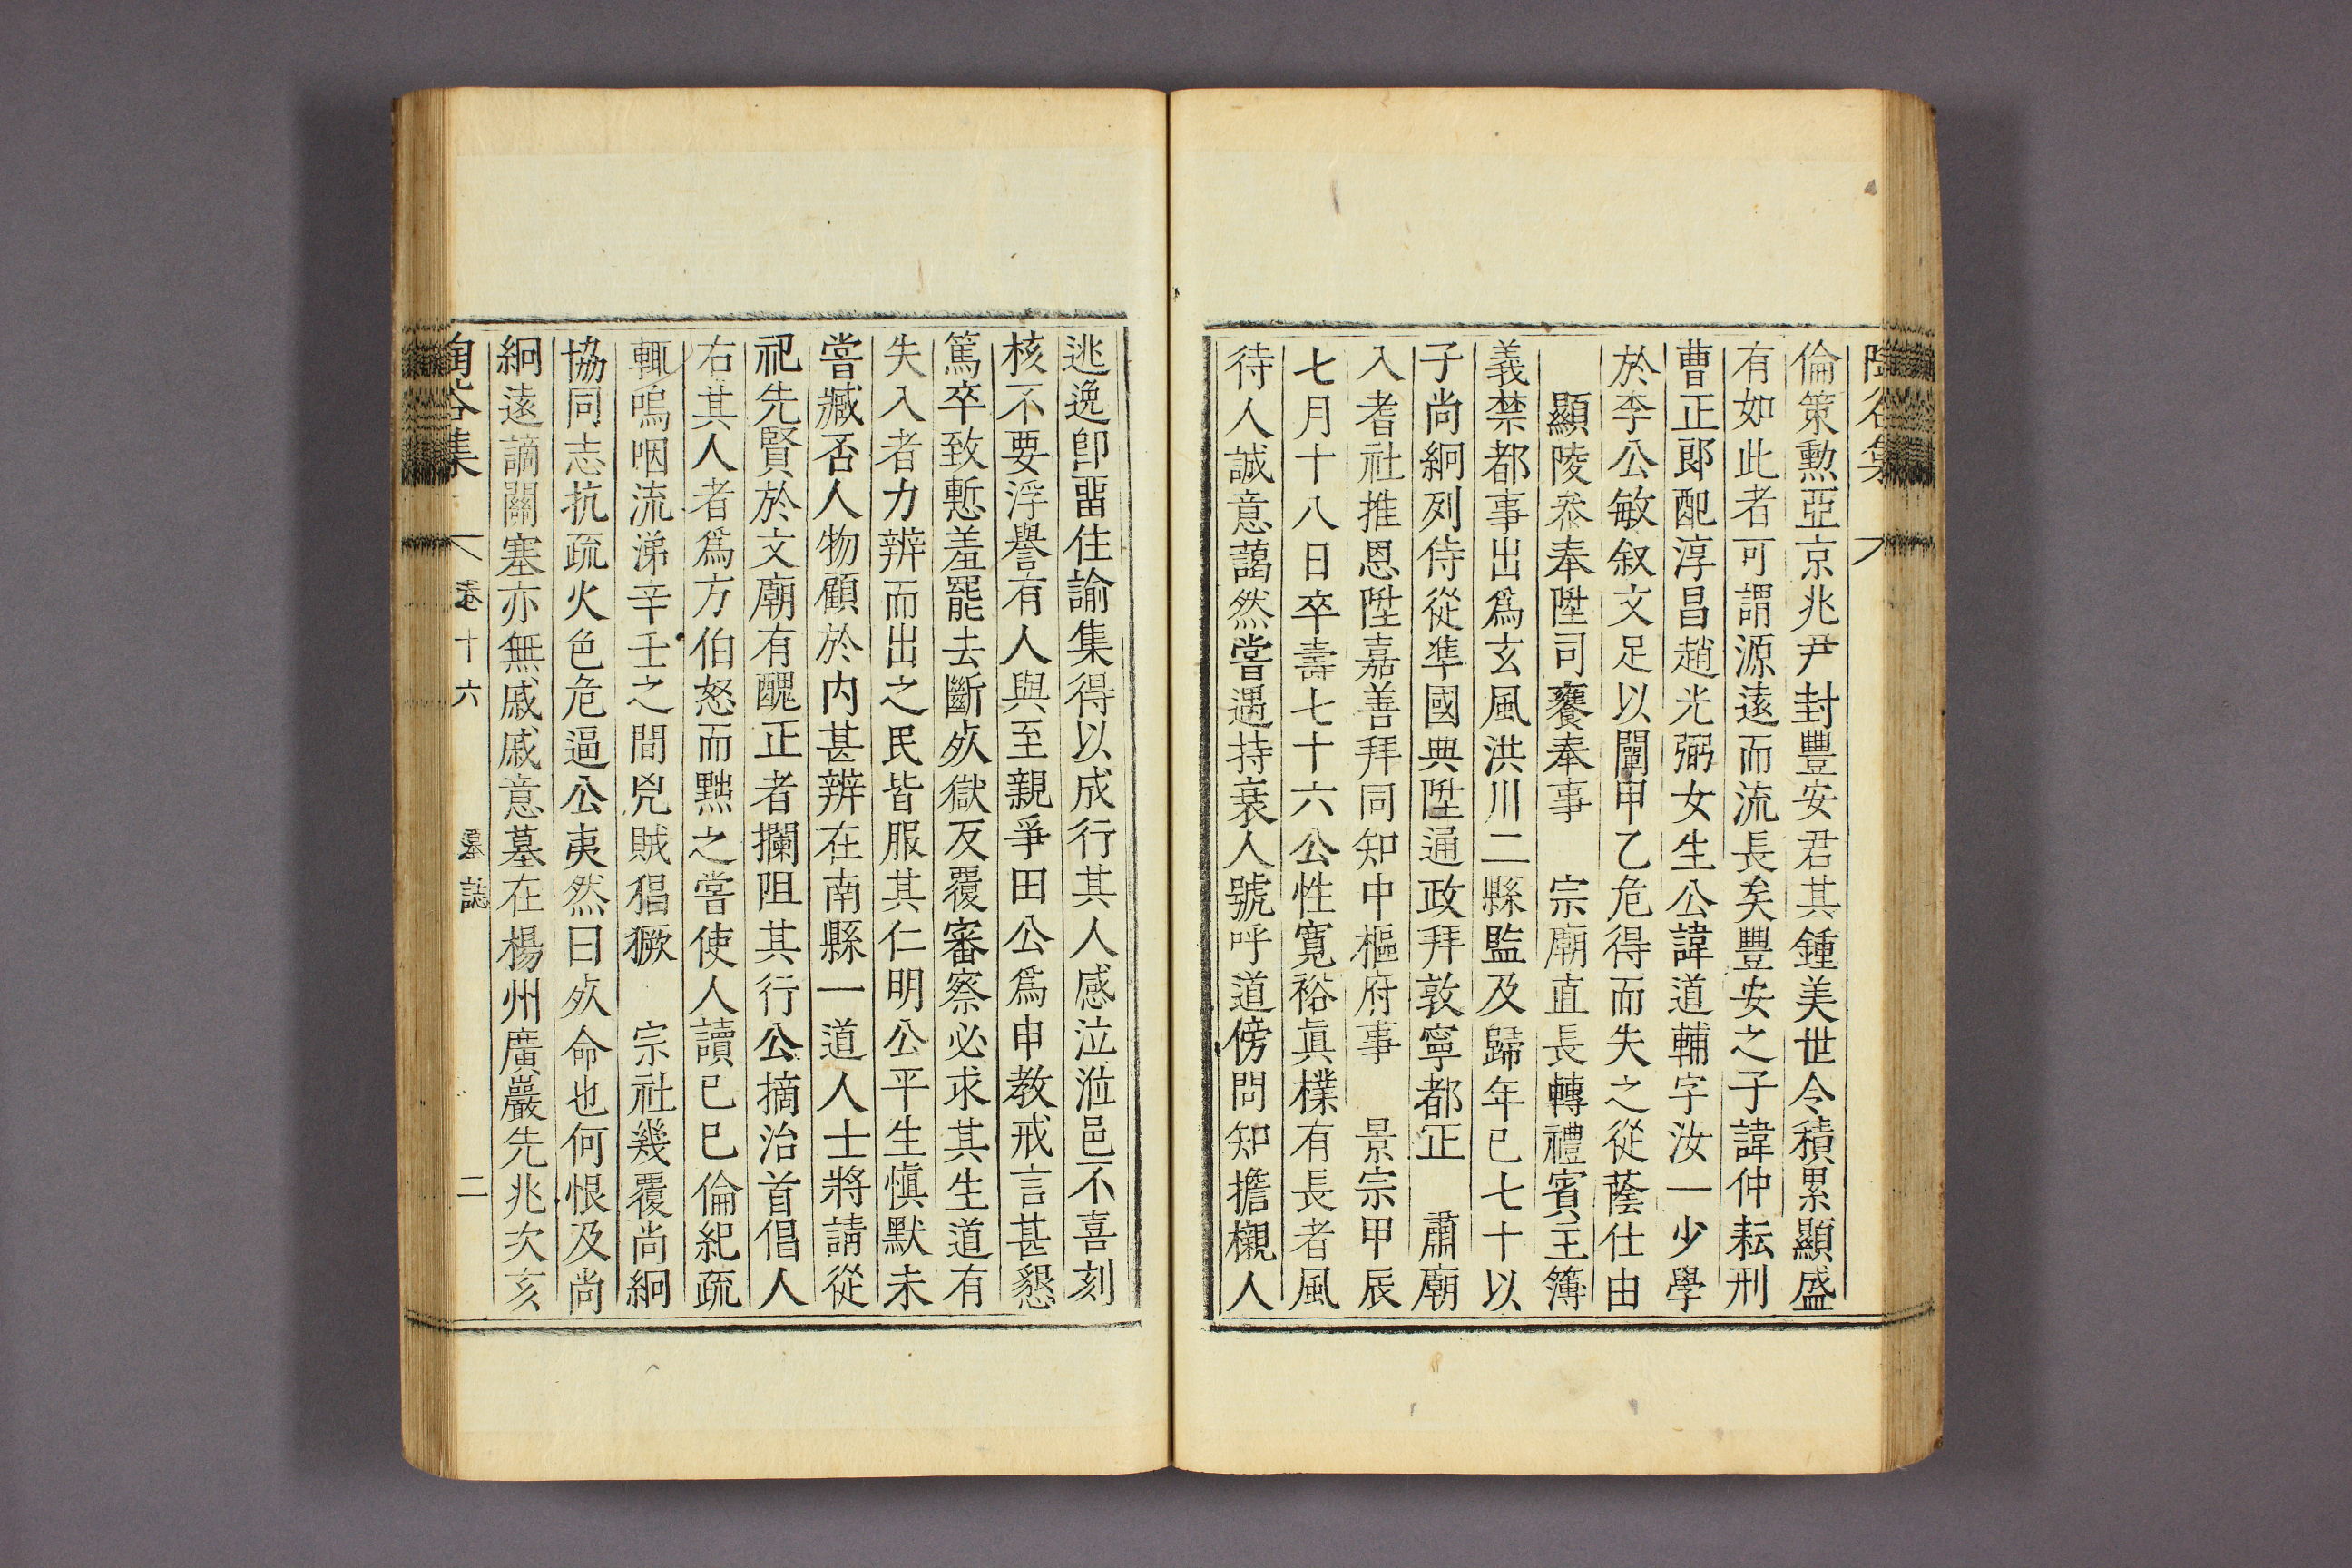 陶谷集
倫策勲亞京兆尹封豐安君其鍾美世令積累顯盛
有如此者可謂源逺而流長矣豐安之子諱仲耘刑
曹正郎配淳昌趙光弼女生公諱道輔字汝一少學
於李公敏叙文足以闡甲乙危得而失之從䕃仕由
顯陵叅奉陞司饔奉事 宗廟直長轉禮賓主簿
義禁都事出爲玄風洪川二縣監及歸年已七十以
子尚絅列侍從凖國典陞通政拜敦寧都正 肅廟
入耆社推恩陞嘉善拜同知中樞府事 景宗甲辰
七月十八日卒壽七十六公性寛裕眞樸有長者風
待人誠意藹然嘗遇持衰人號呼道傍問知擔櫬人
逃逸卽畱住諭集得以成行其人感泣涖邑不喜刻
核不要浮譽有人與至親爭田公爲申教戒言甚懇
篤卒致慙羞罷去斷㱙獄反覆審察必求其生道有
失入者力辨而出之民皆服其仁明公平生愼默未
嘗臧否人物顧於内甚辨在南縣一道人士將請從
祀先賢於文廟有醜正者攔阻其行公摘治首倡人
右其人者爲方伯怒而黜之嘗使人讀已巳倫紀疏
輒嗚咽流涕辛壬之間兇賊猖獗 宗社幾覆尚絅
協同志抗疏火色危逼公夷然曰㱙命也何恨及尚
絅逺謫關塞亦無戚戚意墓在楊州廣巖先兆次亥
陶谷集 卷十六 墓誌 二